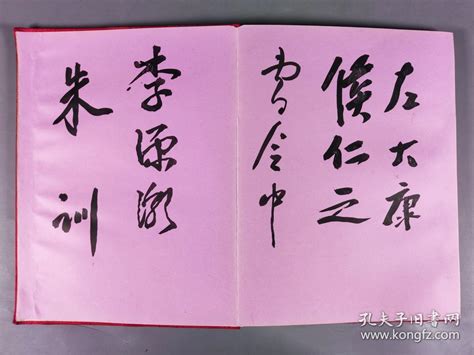 左大康
侯仁之
令中
李源
朱训
孔夫子旧书网
kongfz.com